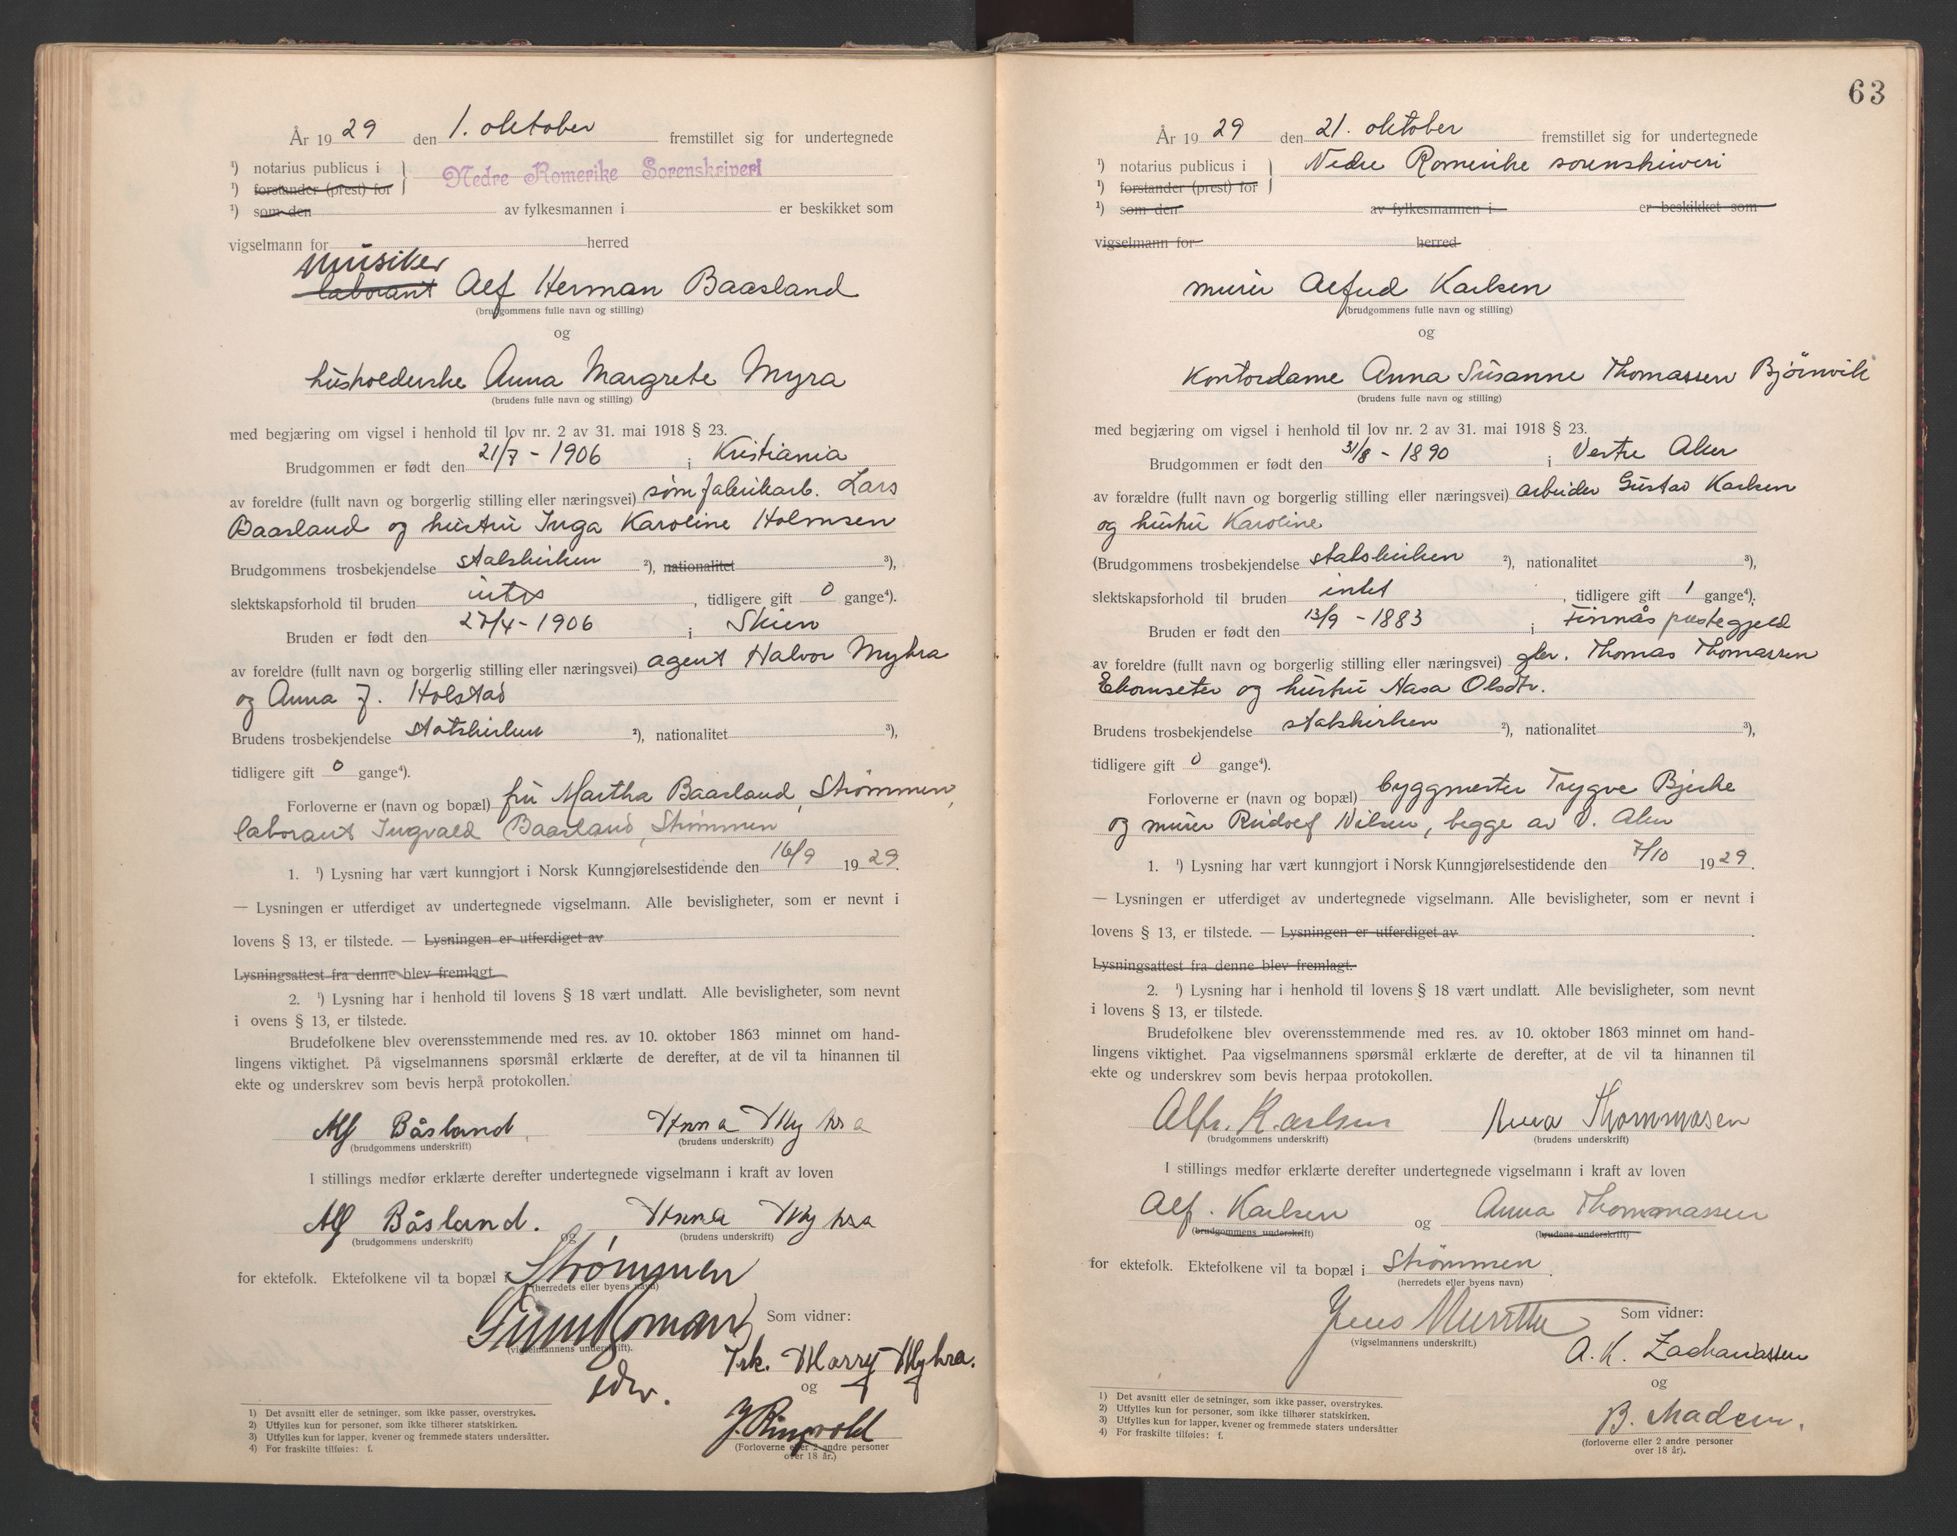 År 1929 den 1. oktober fremstillet sig for undertegnede
¹) notarius publicus i } Nedre Romerike Sorenskriveri
¹) forstander (prest) for
¹) som den av fylkesmannen i er beskikket som
vigselmann for herred
musiker
laborant Alf Herman Baasland
(brudgommens fulle navn og stilling)
og
husholderske Anna Margrete Myra
(brudens fulle navn og stilling)
med begjæring om vigsel i henhold til lov nr. 2 av 31. mai 1918 § 23.
Brudgommen er født den 21/7 - 1906 i Kristiania
av foreldre (fullt navn og borgerlig stilling eller næringsvei) sømfabrikarb. Lars
Baasland og hustru Inga Karoline Holmsen
Brudgommens trosbekjendelse statskirken ²), nationalitet ³),
slektskapsforhold til bruden intet, tidligere gift 0 gange⁴).
Bruden er født den 27/4 - 1906 i Skien
av foreldre (fullt navn og borgerlig stilling eller næringsvei) agent Halvor Myhra
og Anna J. Holstad
Brudens trosbekjendelse statskirken ²), nationalitet ³),
tidligere gift 0 gange⁴).
Forloverne er (navn og bopæl) fru Martha Baasland, Strømmen,
laborant Ingvald Baasland, Strømmen
1. ¹) Lysning har vært kunngjort i Norsk Kunngjørelsestidende den 16/9 1929.
— Lysningen er utferdiget av undertegnede vigselmann. Alle bevisligheter, som er nevnt i
lovens § 13, er tilstede. — Lysningen er utferdiget av
Lysningsattest fra denne blev fremlagt.
2. ¹) Lysning har i henhold til lovens § 18 vært undlatt. Alle bevisligheter, som nevnt
i ovens § 13, er tilstede.
Brudefolkene blev overensstemmende med res. av 10. oktober 1863 minnet om hand-
lingens viktighet. På vigselmannens spørsmål erklærte de derefter, at de vil ta hinannen til
ekte og underskrev som bevis herpå protokollen.
Alf Båsland. Anna Myhra
(brudgommens underskrift) (brudens underskrift)
I stillings medfør erklærte derefter undertegnede vigselmann i kraft av loven
Alf Båsland. og Anna Myhra
(brudgommens underskrift) (brudens underskrift)
for ektefolk. Ektefolkene vil ta bopæl i Strømmen
(herredets eller byens navn)
Som vidner:
(vigselmannens underskrift).
Frk. Marry Myhra.
og
J. Ringvold
(Forloverne eller 2 andre personer
over 18 år.)
1) Det avsnitt eller de setninger, som ikke passer, overstrykes.
2) Utfylles kun for personer, som ikke tilhører statskirken.
3) Utfylles kun for lapper, kvener og fremmede staters undersåtter.
4) For fraskilte tilføies: f.
63
År 1929 den 21. oktober fremstillet sig for undertegnede
¹) notarius publicus i } Nedre Romerike sorenskriveri
¹) forstander (prest) for
¹) som den av fylkesmannen i er beskikket som
vigselmann for herred
murer Alfred Karlsen
(brudgommens fulle navn og stilling)
og
Kontordame Anna Susanne Thomassen Bjørnvik
(brudens fulle navn og stilling)
med begjæring om vigsel i henhold til lov nr. 2 av 31. mai 1918 § 23.
Brudgommen er født den 31/8 - 1890 i Vestre Aker
av forældre (fullt navn og borgerlig stilling eller næringsvei) arbeider Gustav Karlsen
og hustru Karoline
(Brudgommens trosbekjendelse statskirken ²), nationalitet ³),
slektskapsforhold til bruden intet, tidligere gift 1 gange⁴).
Bruden er født den 13/9 - 1883 i Finnås prestegjeld
av foreldre (fullt navn og borgerlig stilling eller næringsvei) gbr. Thomas Thomassen
Ekornseter og hustru Aasa Olsdtr.
Brudens trosbekjendelse statskirken ²), nationalitet ³),
tidligere gift 0 gange⁴).
Forloverne er (navn og bopæl) byggmester Trygve Bjerke
og murer Rudolf Nilsen, begge av V. Aker
1. ¹) Lysning har vært kunngjort i Norsk Kunngjørelsestidende den 7/10 1929.
— Lysningen er utferdiget av undertegnede vigselmann. Alle bevisligheter, som er nevnt i
lovens § 13, er tilstede. — Lysningen er utferdiget av .
Lysningsattest fra denne blev fremlagt.
2. ¹) Lysning har i henhold til lovens § 18 vært undlatt. Alle bevisligheter, som nevnt
i lovens § 13, er tilstede.
Brudefolkene blev overensstemmende med res. av 10. oktober 1863 minnet om hand-
lingens viktighet. Paa vigselmannens spørsmål erklærte de derefter, at de vil ta hinannen til
ekte og underskrev som bevis herpaa protokollen.
Alfr. Karlsen Anna Thommasen
(brudgommens underskrift) (brudens underskrift)
I stillings medfør erklærte derefter undertegnede vigselmann i kraft av loven
Alf. Karlsen og Anna Thommassen
(brudgommens underskrift) (brudens underskrift)
for ektefolk. Ektefolkene vil ta bopæl i Strømmen.
(herredets eller byens navn)
Jens Som vidner:
(vigselmannens underskrift.)
A. K. Zachariassen
og
B. Madsen.
(forloverne eller 2 andre personer
over 18 år).
1) Det avsnitt eller de setninger, som ikke passer, overstrykes.
2) Utfylles kun for personer, som ikke tilhører statskirken.
3) Utfylles kun for lapper, kvener og fremmede staters undersåtter
4) For fraskilte tilføies: f.